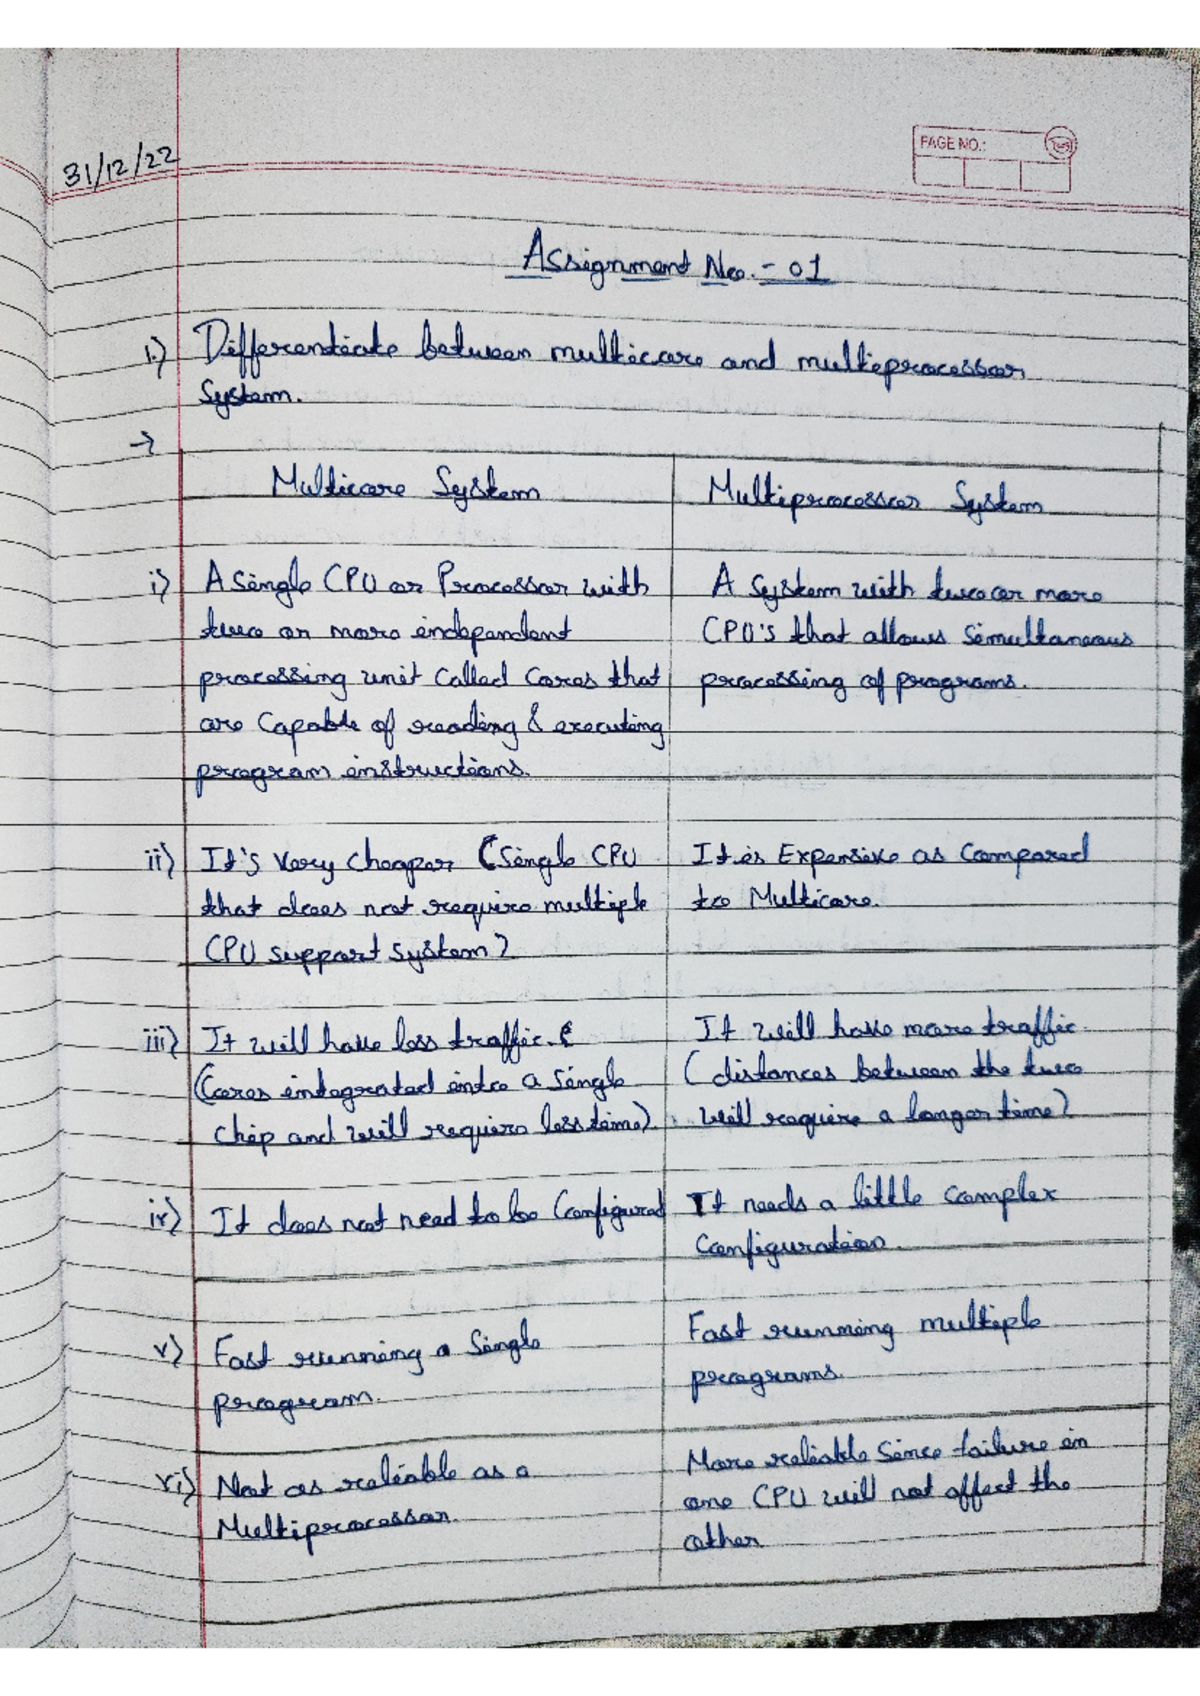 31/12/22
PAGE NO.:
Assignment No. - 01
1.) Differentiate between multicore and multiprocessor
System.
→
Multicore System Multiprocessor System
i) A Single CPU or Processor with
two or more independent
processing unit called Cores that
are Capable of reading & executing
program instructions.
A System with two or more
CPU's that allows Simultaneous
processing of programs.
ii) It's Very Cheaper (Single CPU
that does not require multiple
CPU support system)
It is Expensive as Compared
to Multicore.
iii) It will have less traffic.
(Cores integrated into a Single
Chip and will require less time)
It will have more traffic
(distances between the two
will require a longer time)
iv) It does not need to be Configured
It needs a little complex
Configuration.
v) Fast running a Single
program.
Fast running multiple
programs.
vi) Not as reliable as a
Multiprocessor.
More reliable Since failure in
one CPU will not affect the
other